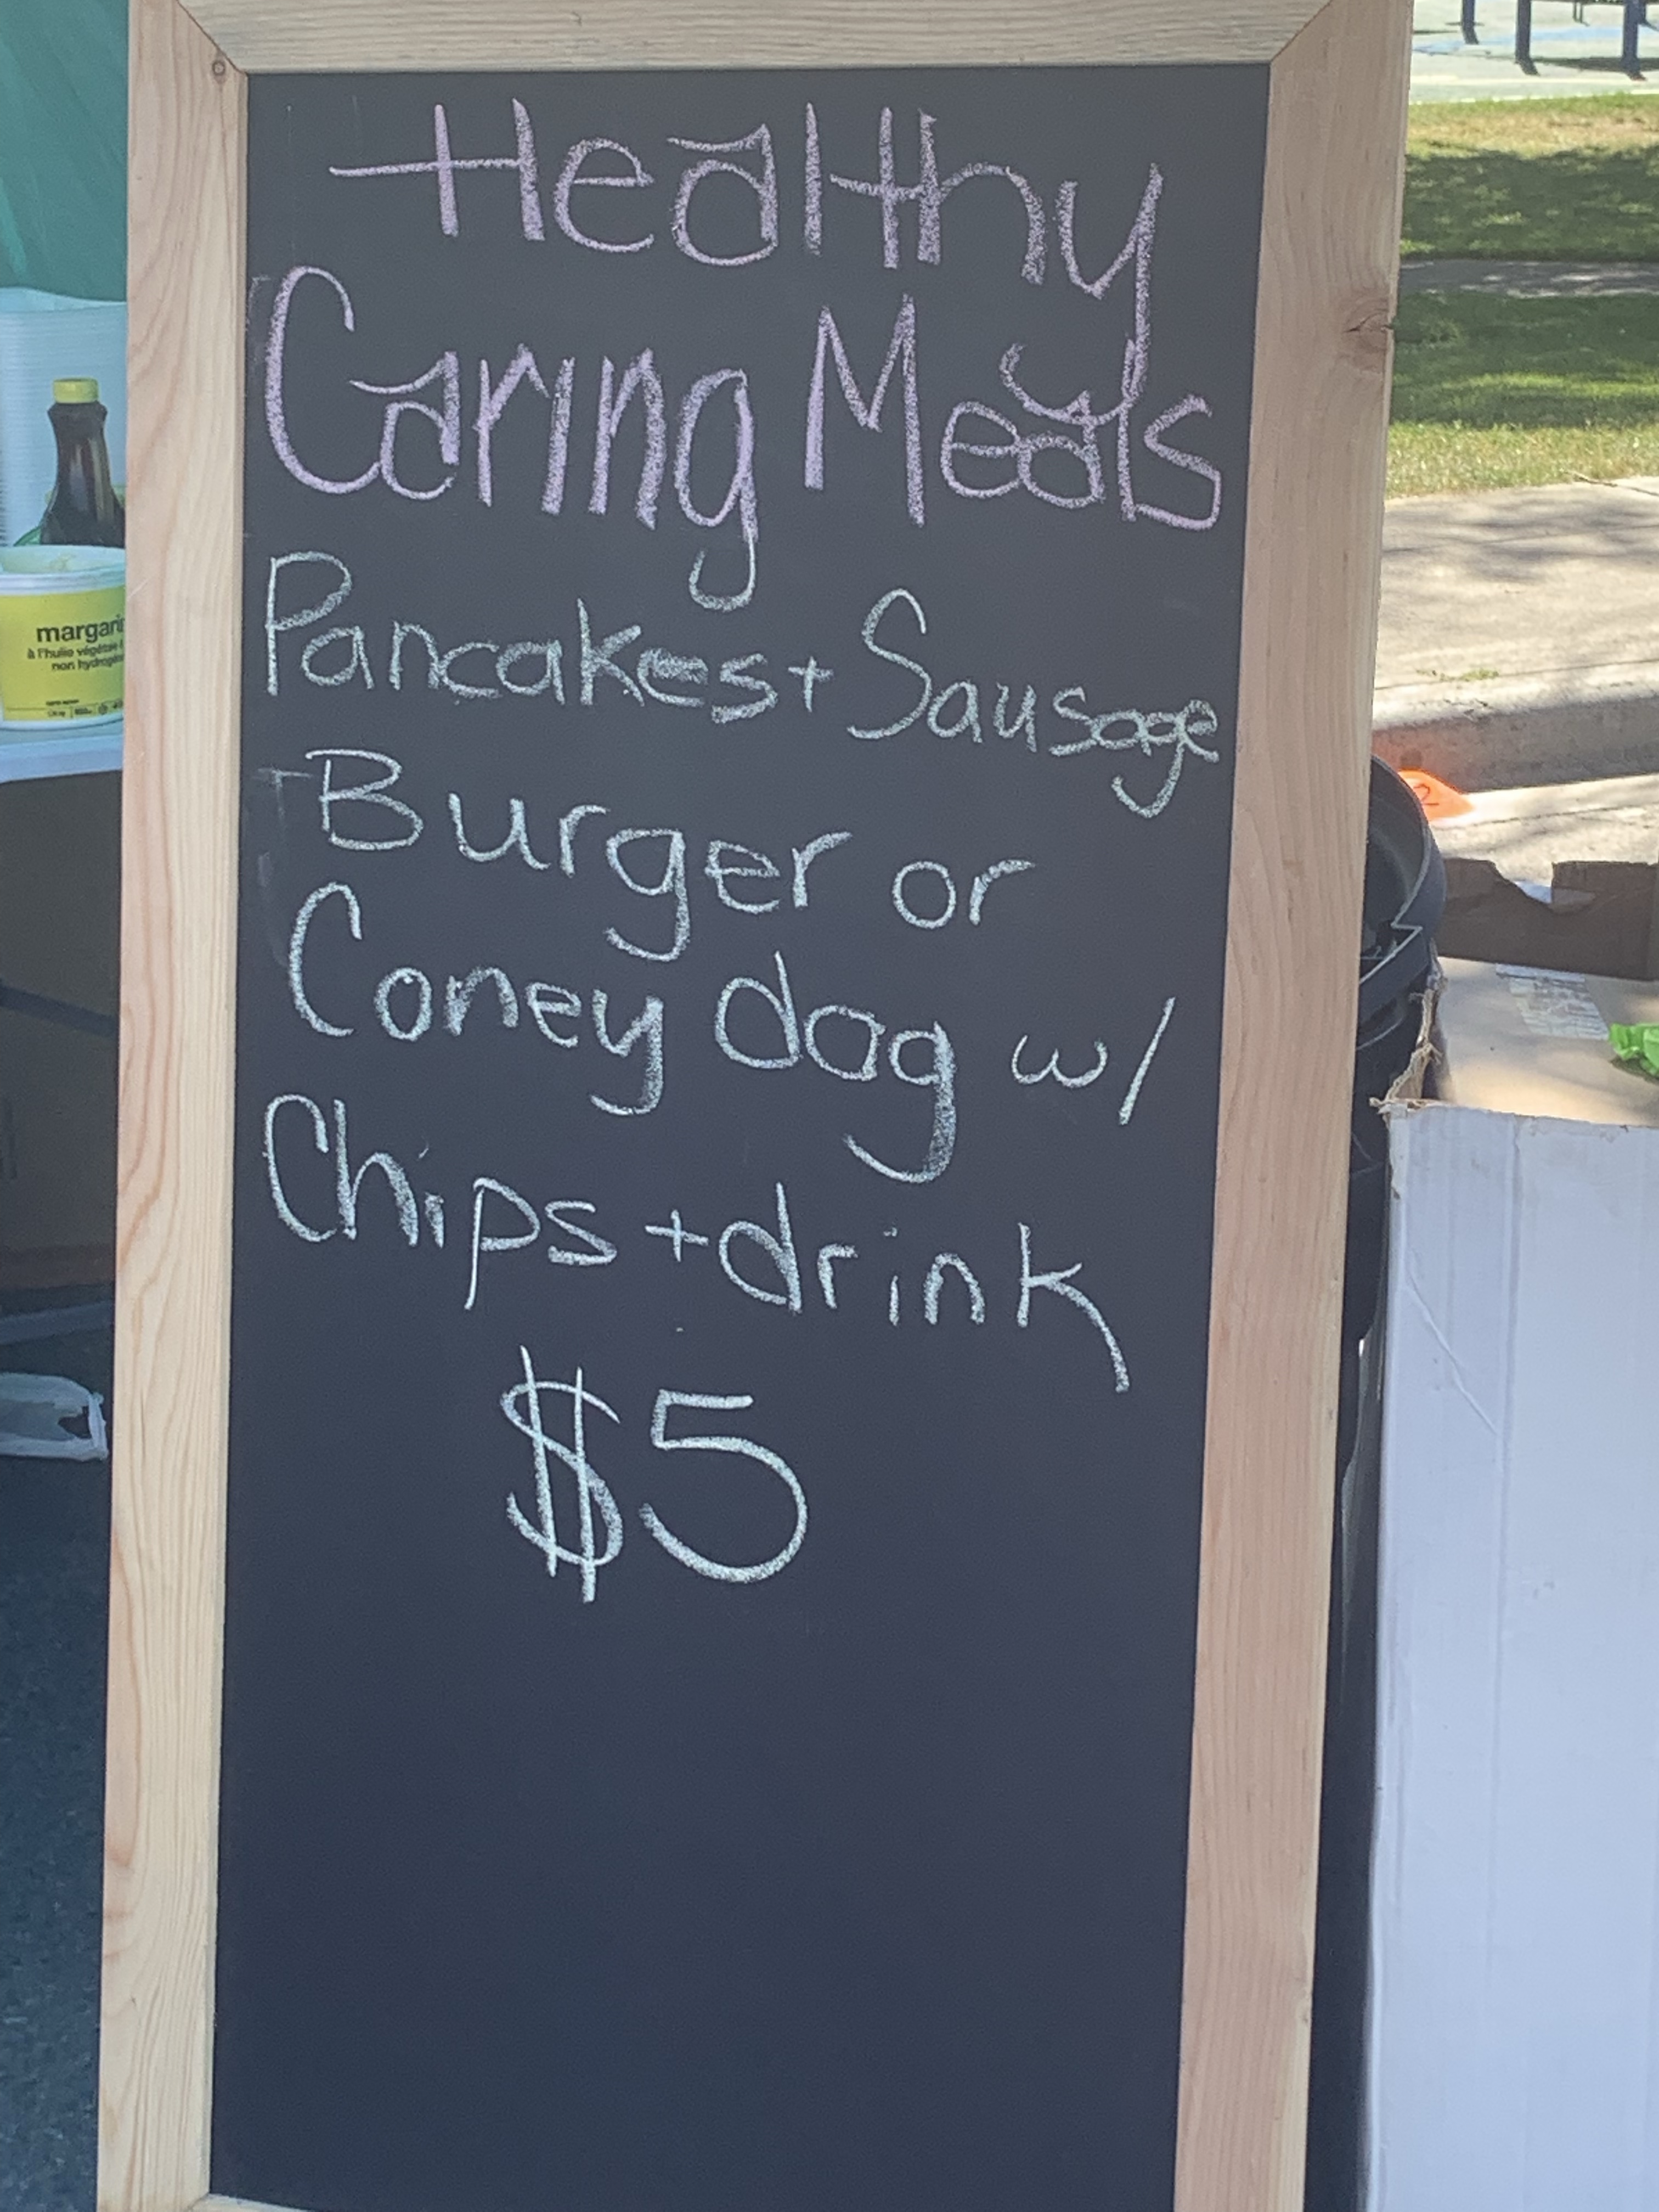 Healthy
Caring Meals
Pancakes + Sausage
Burger or
Coney dog w/
Chips + drink
$5
margari
à l'huile végétale
non hydrogén
2